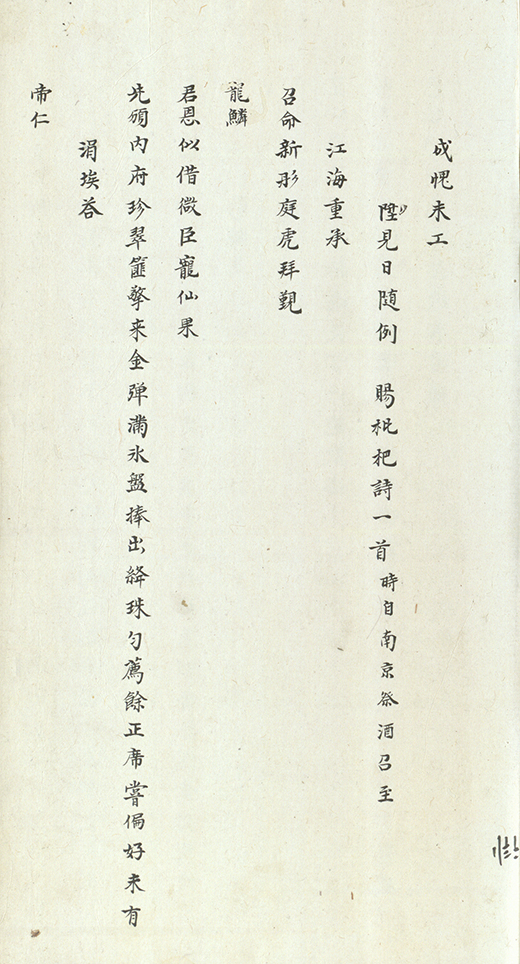 成愧未工
陛見日隨例　賜枇杷詩一首時自南京祭酒召至
江海重承
召命新彤庭虎拜覲
龍鱗
君恩似借微臣寵仙果
先頒內府珍翠篚擎来金弹滿氷盤捧出絳珠勻薦餘正席嘗偏好未有
涓埃荅
帝仁